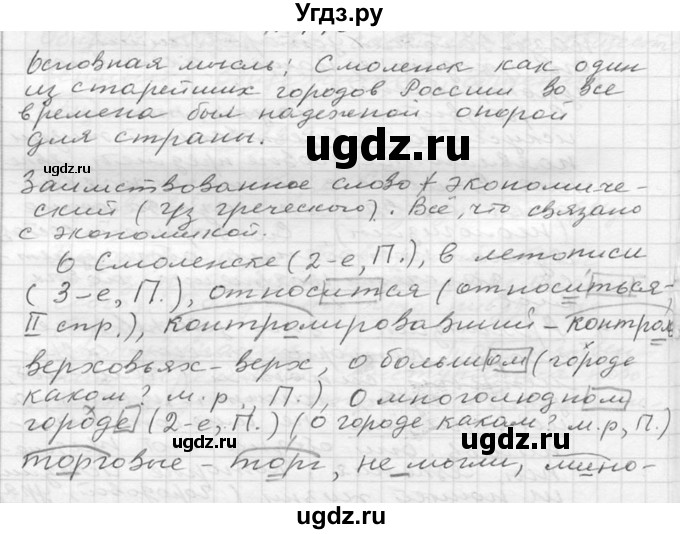 Угдз.ру
Основная мысль: Смоленск как один
из старейших городов России во все
времена был надежной опорой
для страны.
Заимствованное слово: экономиче-
ский (из греческого). Всё, что связано
с экономикой.
О Смоленске (2-е, П.), в летописи
(3-е, П.), относится (относиться-
II спр.), контролировавший - контрол
верховьях - верх, о большом (городе
каком? м.р., П.), о многолюдном
городе (2-е, П.) (о городе каком? м.р, П.)
торговые - торг, не могли, мино-
ugdz.ru
ugdz.ru
ugdz.ru
ugdz.ru
ugdz.ru
ugdz.ru
ugdz.ru
ugdz.ru
ugdz.ru